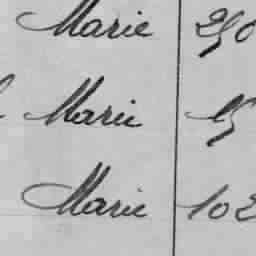 Marie 250
Marie 15
Marie 102